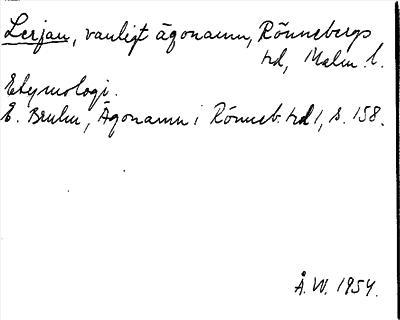 Lerjan, vanligt ägonamn, Rönnebergs
hd, Malm. l.
Etymologi.
E. Bruhn, Ägonamn i Rönneb. hd 1, s. 158.
Å. W. 1954.